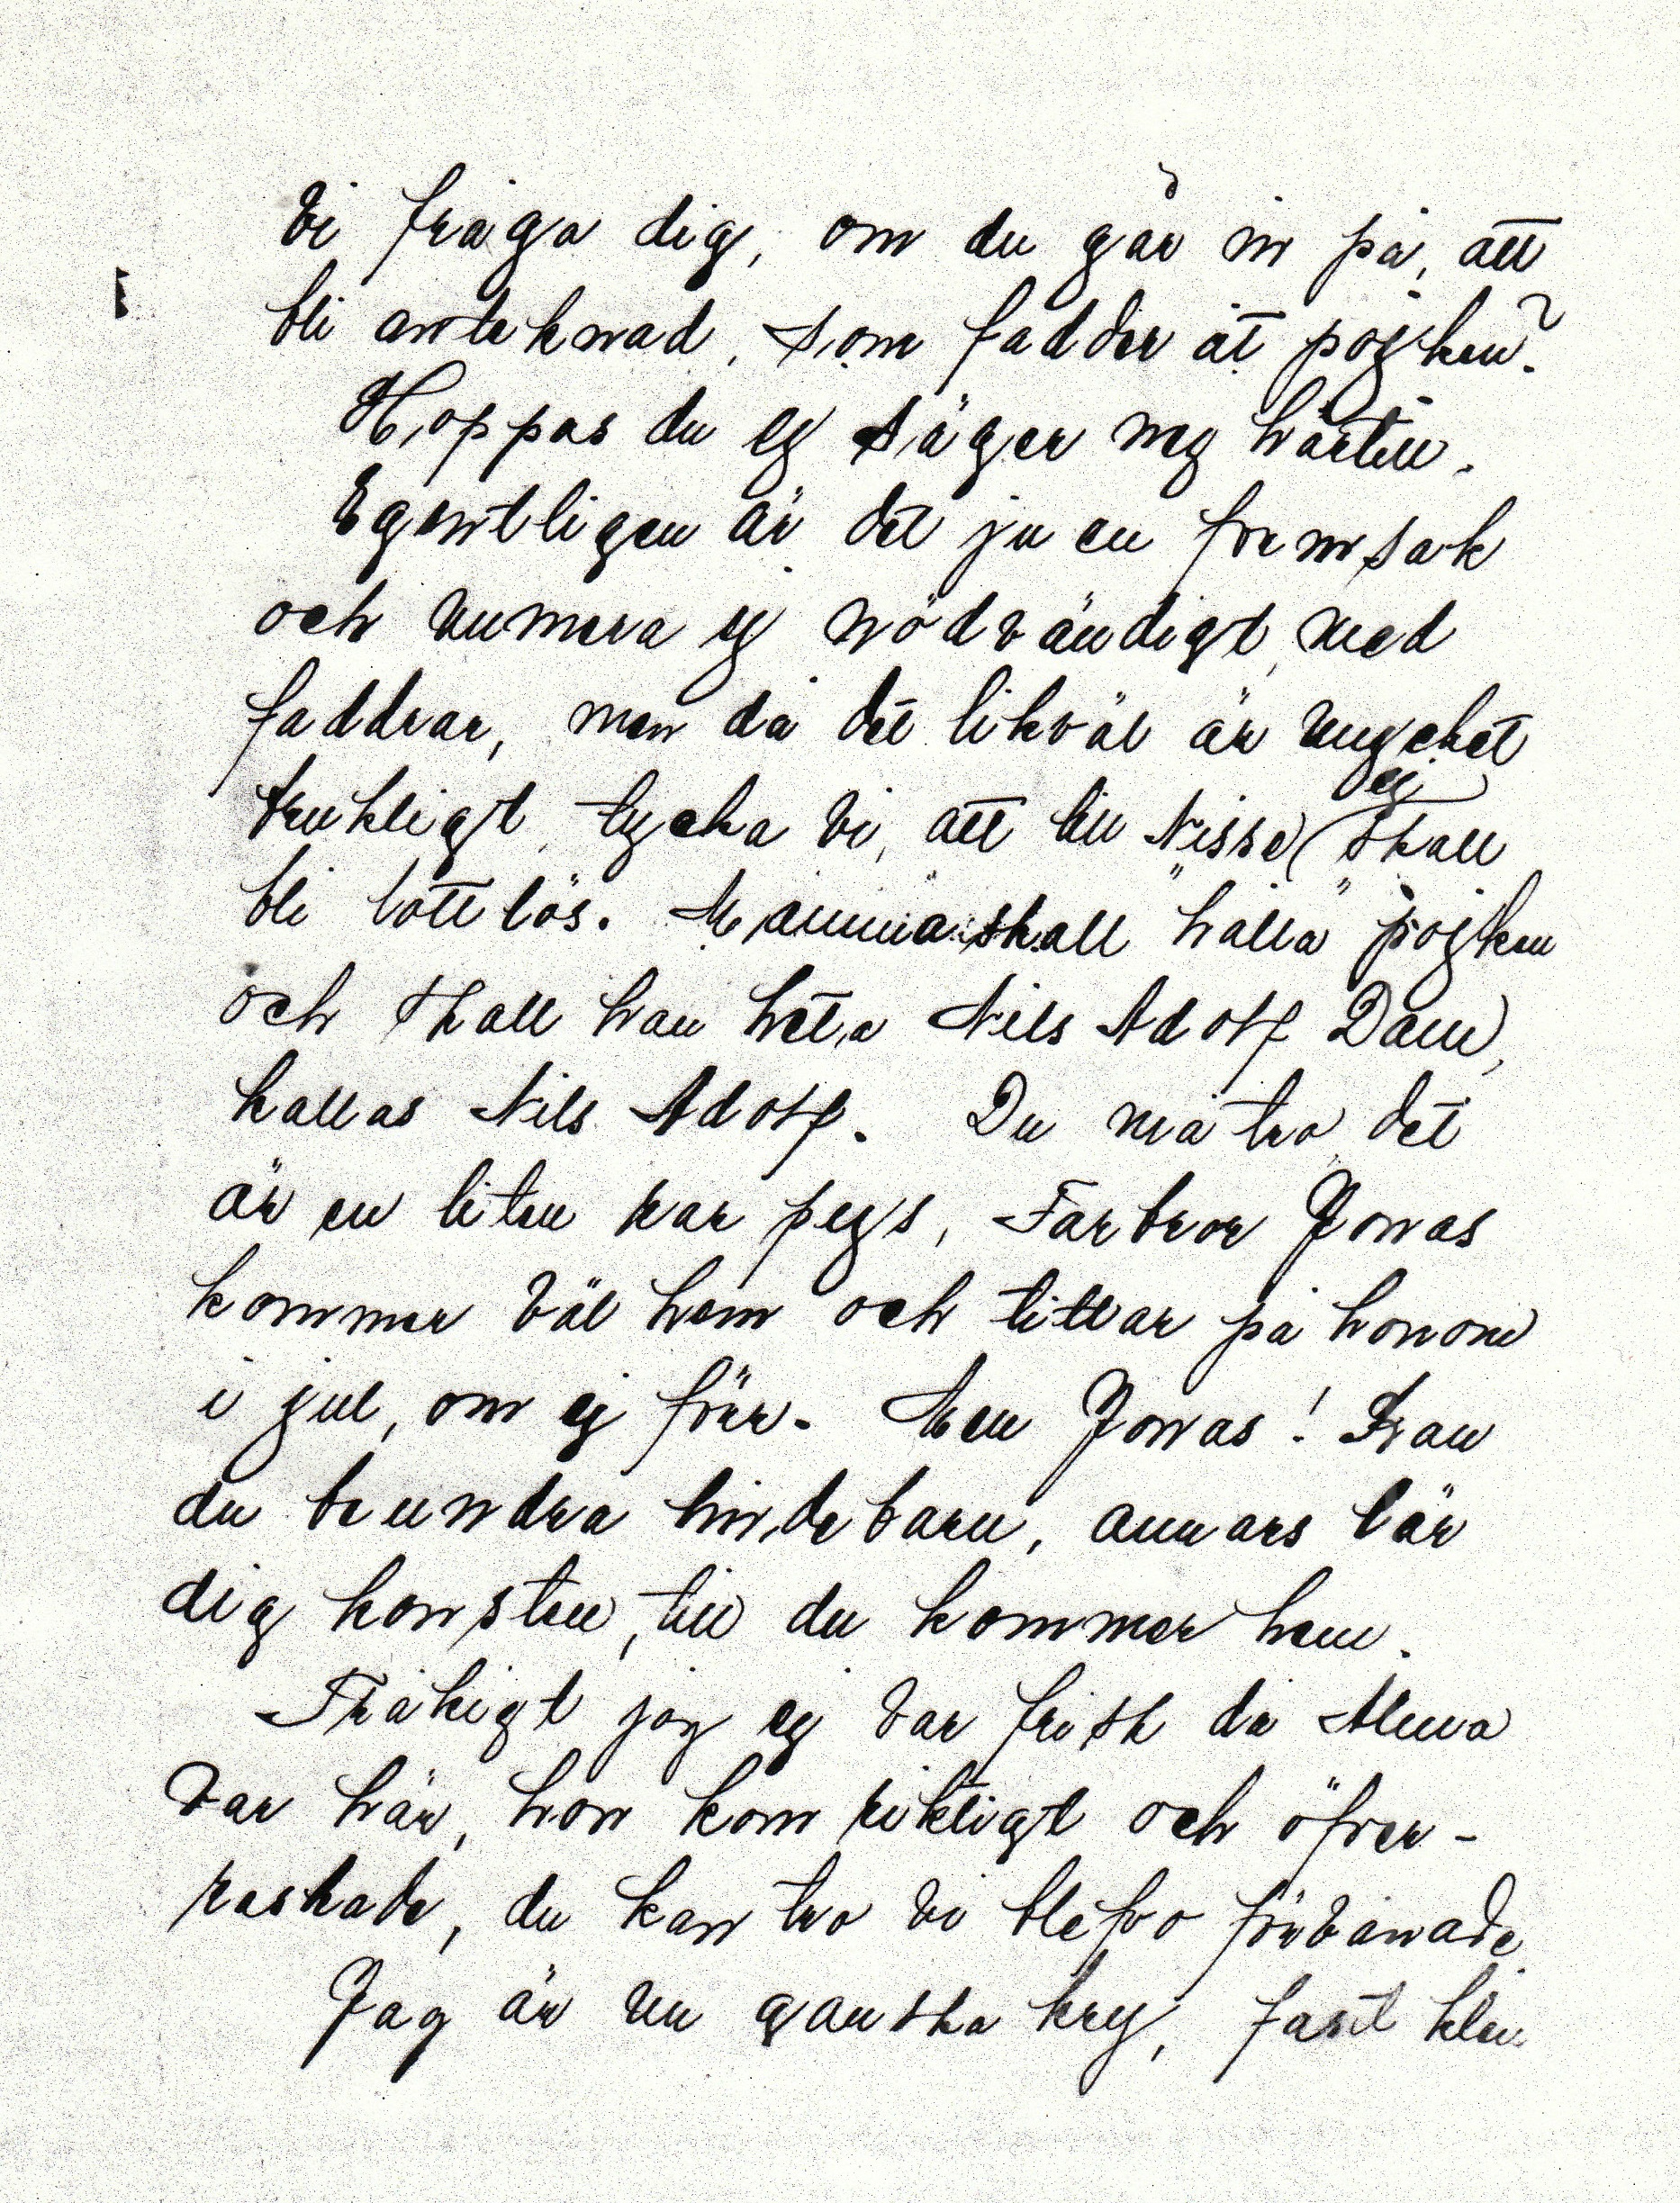 vi fråga dig, om du går in på, att
bli anteknad, som fadder åt pojken?
Hoppas du ej säger nej härtill.
Egentligen är det ju en formsak
och numera ej nödvändigt med
faddrar, men då det likväl är mycket
brukligt, tycka vi, att lill Nisse ej skall
bli lottlös. Mamma skall "hålla" pojken
och skall han heta Nils Adolf Dam,
kallas Nils Adolf. Du må tro det
är en liten kar pejs, Farbror Jonas
kommer väl hem och tittar på honom
i jul, om ej förr. Men Jonas! Kan
du beundra lindebarn, annars lär
dig konsten, till du kommer hem.
Tråkigt jag ej var frisk då Alma
var här, hon kom riktigt och öfver-
raskade, du kan tro vi blefvo förvånade
Jag är nu ganska kry, fast klen